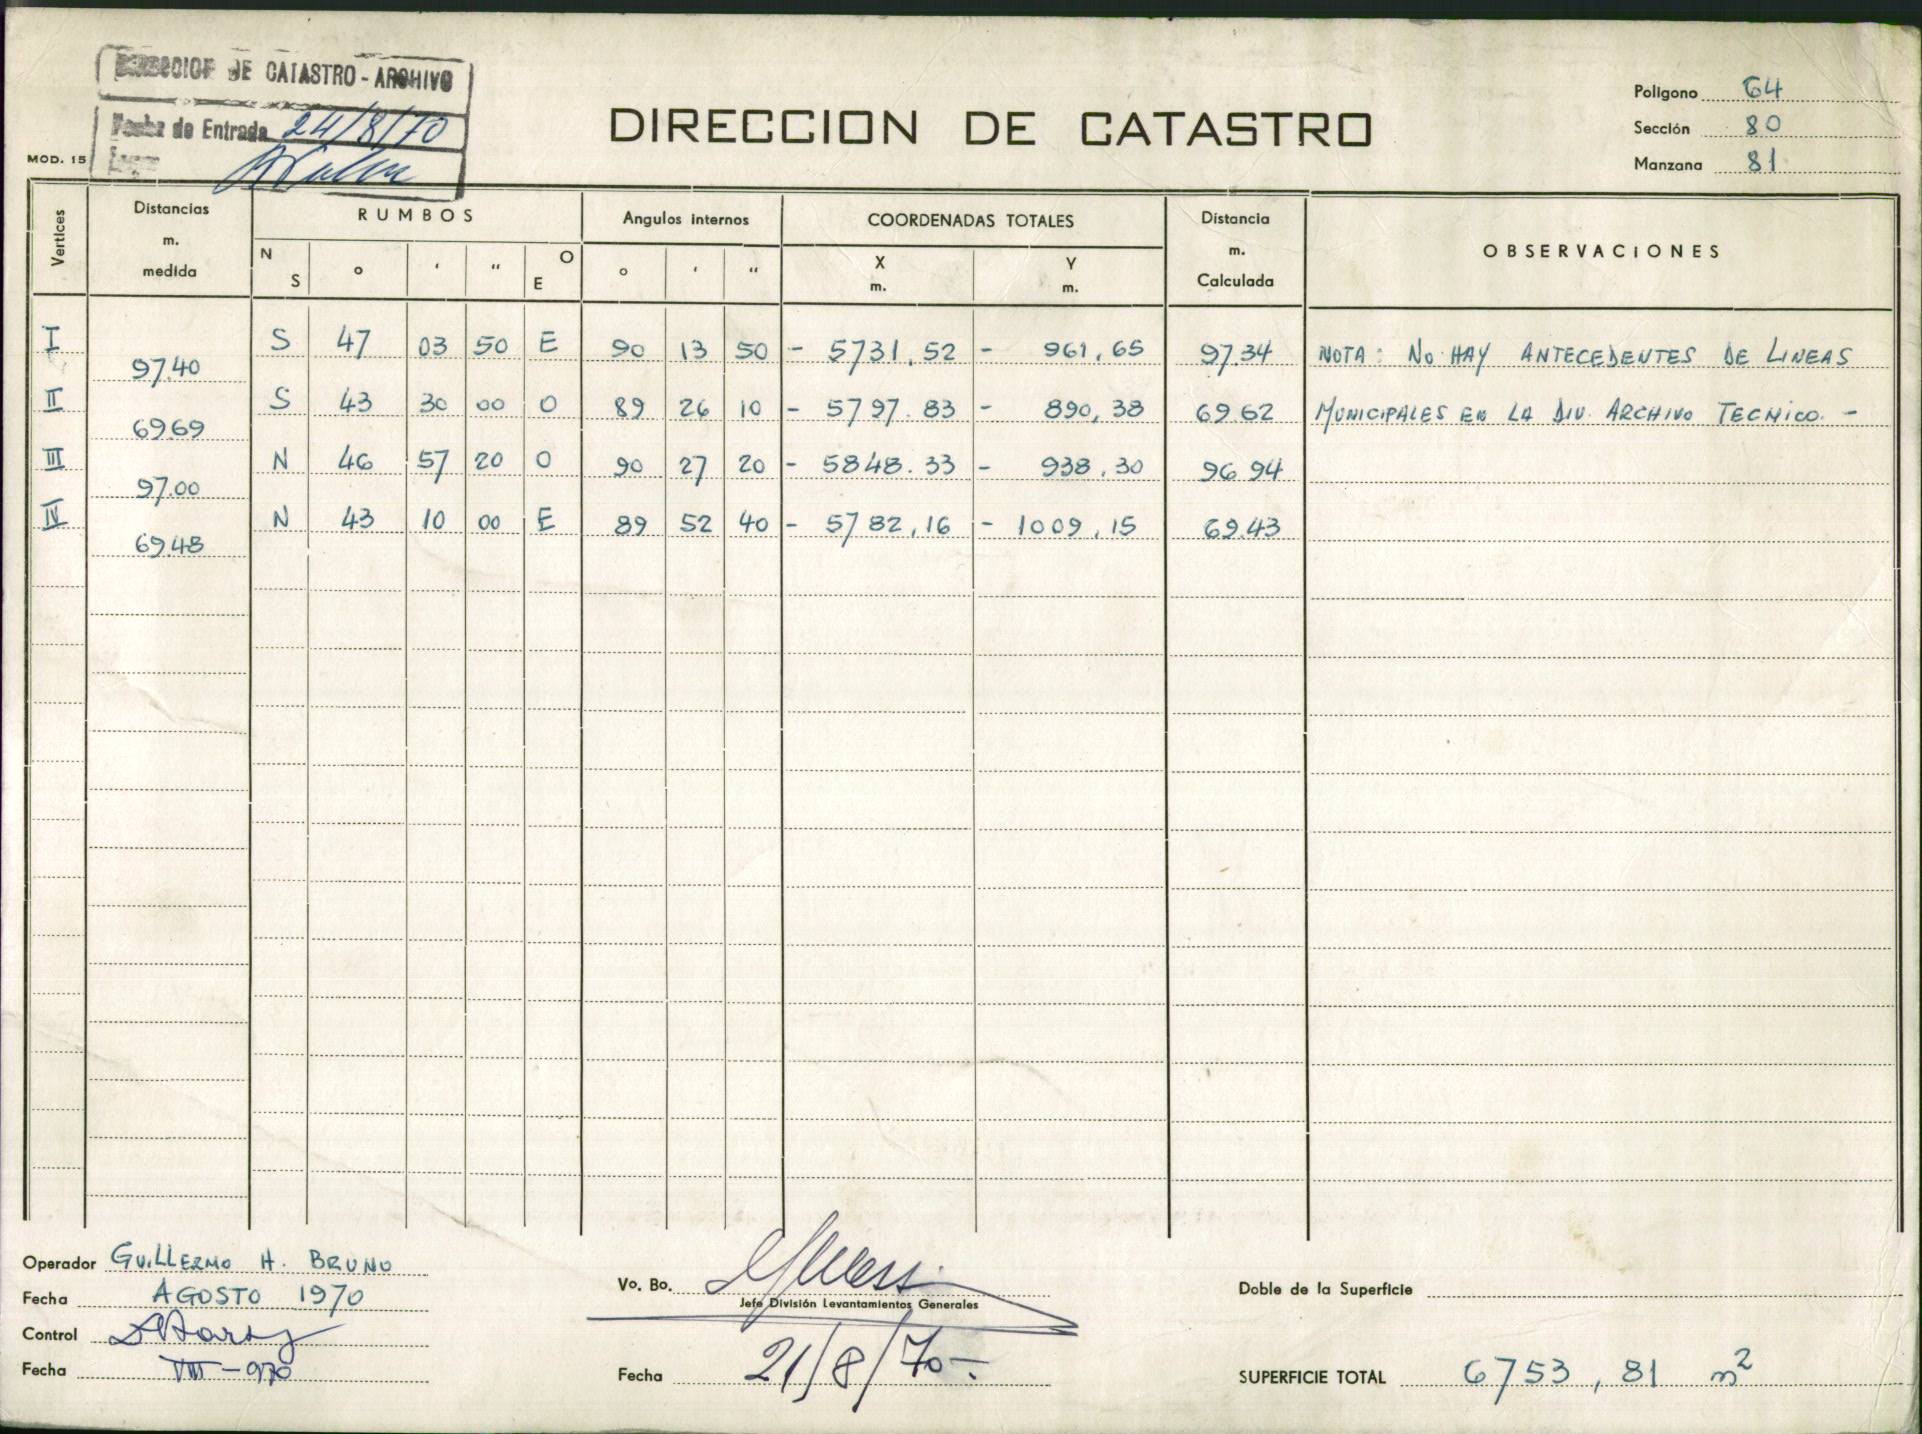 DIRECCION DE CATASTRO - ARCHIVO
Fecha de Entrada 24/8/70
MOD. 15
DIRECCION DE CATASTRO
Poligono 64
Sección 80
Manzana 81
Vertices Distancias m. medida RUMBOS Angulos internos COORDENADAS TOTALES Distancia m. Calculada OBSERVACIONES
N S ° ' " O E ° ' " X m. Y m.
I 97.40 S 47 03 50 E 90 13 50 - 5731,52 - 961,65 97.34 NOTA: NO HAY ANTECEDENTES DE LINEAS
II 69.69 S 43 30 00 O 89 26 10 - 5797.83 - 890,38 69.62 MUNICIPALES EN LA DIV. ARCHIVO TECNICO. -
III 97.00 N 46 57 20 O 90 27 20 - 5848.33 - 938,30 96.94
IV 69.48 N 43 10 00 E 89 52 40 - 5782,16 - 1009,15 69.43
Operador GUILLERMO H. BRUNO
Fecha AGOSTO 1970
Control
Fecha VIII - 970
Vo. Bo.
Jefe División Levantamientos Generales
Fecha 21/8/70-
Doble de la Superficie
SUPERFICIE TOTAL 6753,81 m²